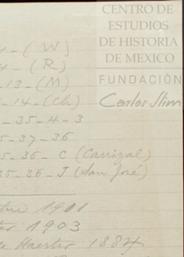 CENTRO DE
ESTUDIOS
DE HISTORIA
DE MEXICO
FUNDACIÓN
Carlos Slim
- (W)
- (R)
-13-(M)
-14-(Ch)
-35-4-3
5-37-36
5-36- C (Carrizal)
35-36- J (San José)
1901
1903
1884